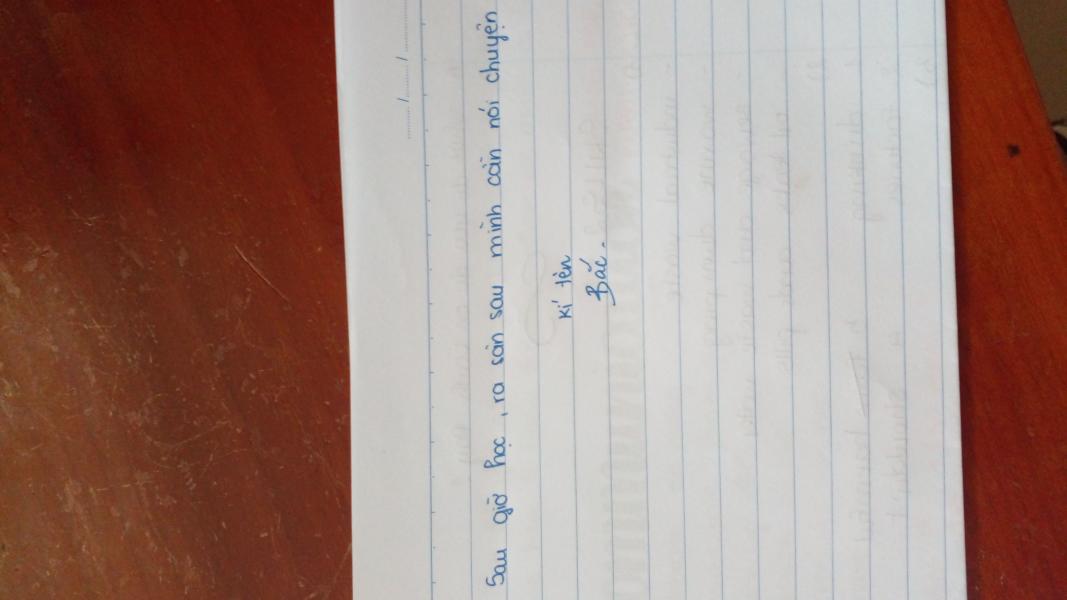 Sau giờ học, ra sân sau mình cần nói chuyện
Kí tên
Bắc.